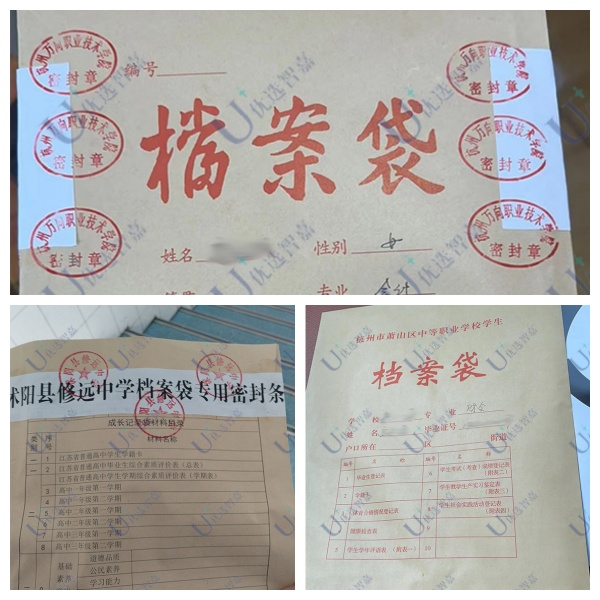 编号
档案袋
杭州万向职业技术学院
密封章
杭州万向职业技术学院
密封章
杭州万向职业技术学院
密封章
杭州万向职业技术学院
密封章
杭州万向职业技术学院
密封章
杭州万向职业技术学院
密封章
姓名
性别 女
专业 会计
优选智嘉
沭阳县修远中学档案袋专用密封条
成长记录袋材料目录
类别 序号 材料名称
一 1 江苏省普通高中学生学籍卡
二 1 江苏省普通高中毕业生综合素质评价表（总表）
2 江苏省普通高中学生学期综合素质评价表（学期表）
3 高中一年级第一学期
4 高中一年级第二学期
5 高中二年级第一学期
6 高中二年级第二学期
7 高中三年级第一学期
8 高中三年级第二学期
基础素养
道德品质
公民素养
学习能力
杭州市萧山区中等职业学校学生
档案袋
学校 专业
姓名 毕业证号
户口所在 区 街道
编号 名称 编号 名称
1 毕业生登记表
2 学籍卡
5 学生学年评语表（附表一） 10